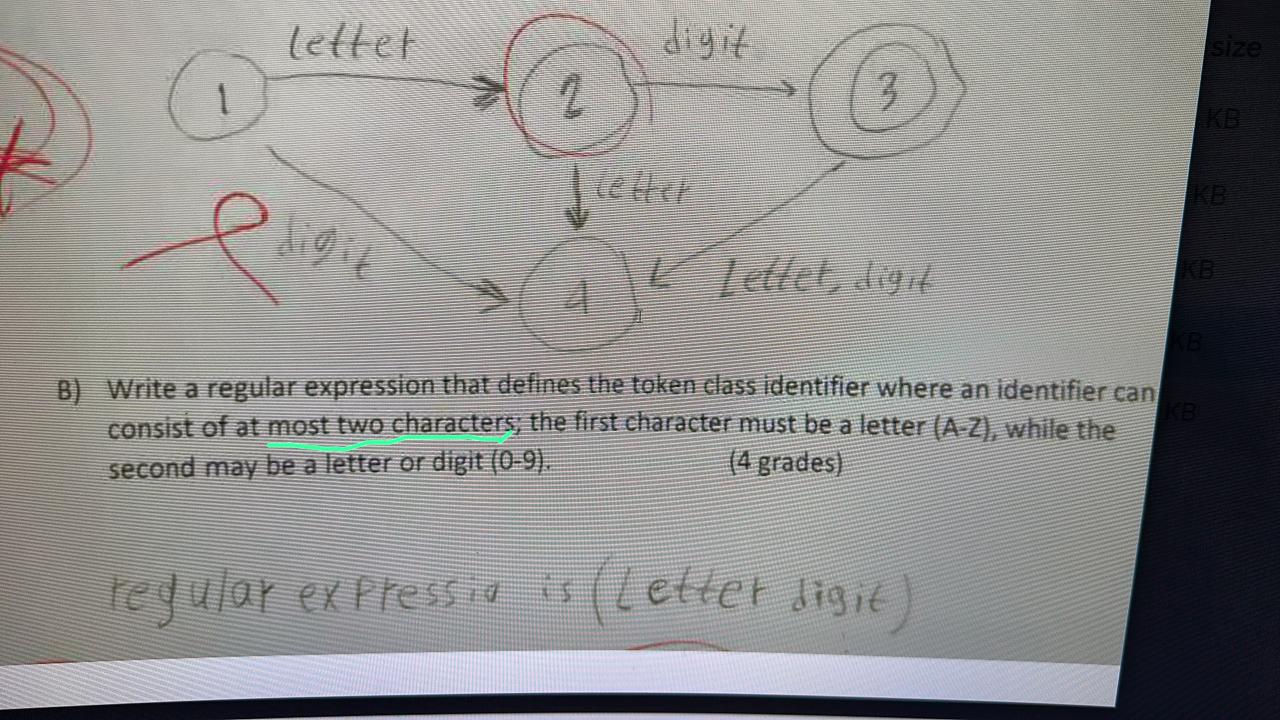 letter
digit
size
1
2
3
KB
letter
KB
digit
4
Letter, digit
KB
KB
B) Write a regular expression that defines the token class identifier where an identifier can
consist of at most two characters; the first character must be a letter (A-Z), while the
KB
second may be a letter or digit (0-9). (4 grades)
regular expressio is (Letter digit)